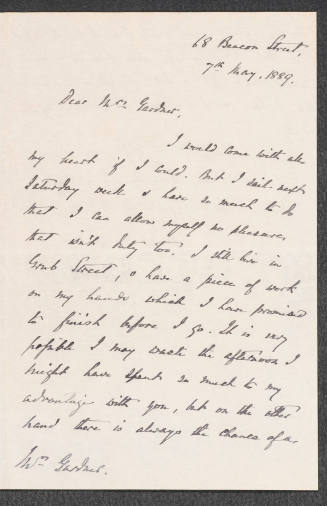 68 Beacon Street,
7th May, 1889.
Dear Mrs. Gardner,
I would come with all
my heart if I could. But I sail next
Saturday week & have so much to do
that I can allow myself no pleasures
that isn't duty too. I still live in
Grub Street, & have a piece of work
on my hands which I have promised
to finish before I go. It is very
possible I may waste the afternoon I
might have spent so much to my
advantage with you, but on the other
hand there is always the chance of a
Mrs. Gardner.